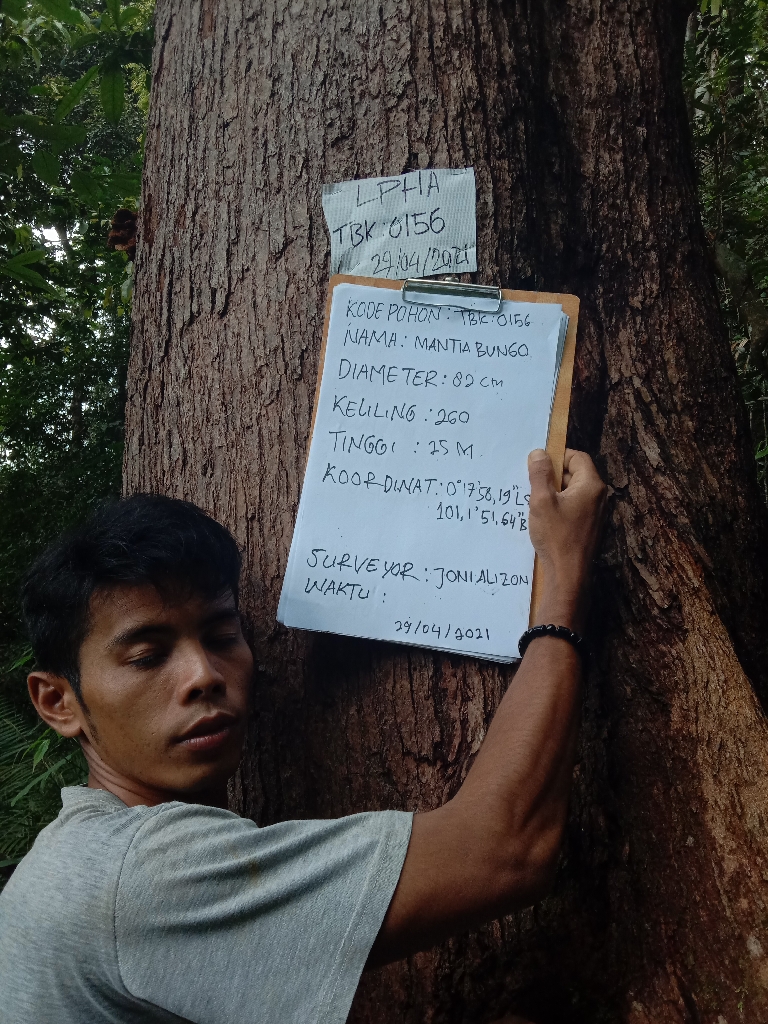 LPHA
TBK:0156
29/04/2021
KODE POHON : TBK:0156
NAMA : MANTIA BUNGO
DIAMETER : 82 cm
KELILING : 260
TINGGI : 25 M
KOORDINAT : 0°17'56,19"LS
101,1'51,64"B
SURVEYOR : JONI ALIZON
WAKTU :
29/04/2021